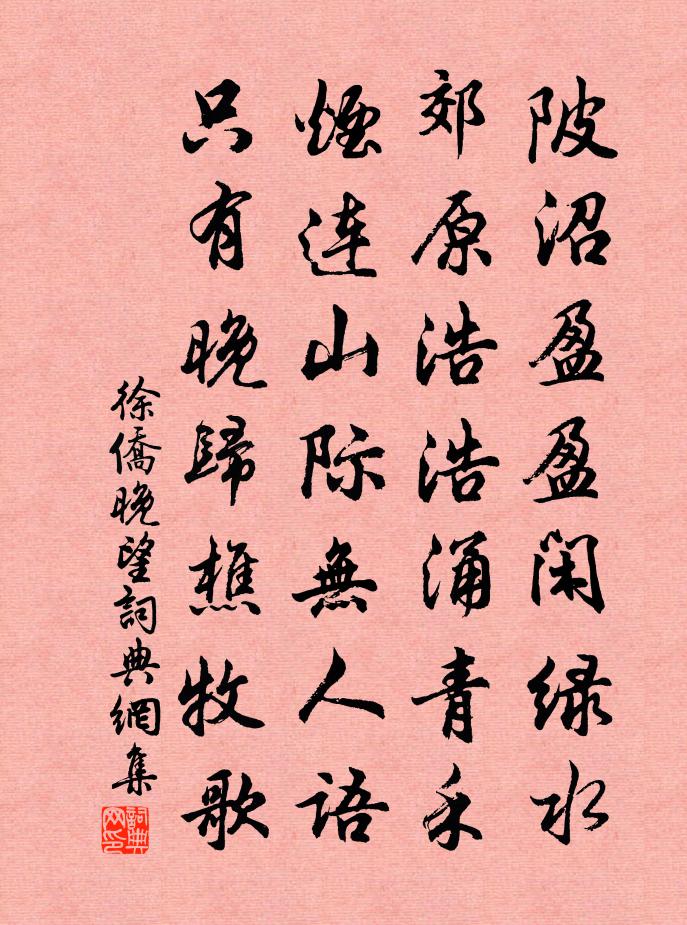 陂沼盈盈闲绿水
郊原浩浩涌青禾
煙连山际無人语
只有晚歸樵牧歌
徐僑晚望詞典網集
詞典网印